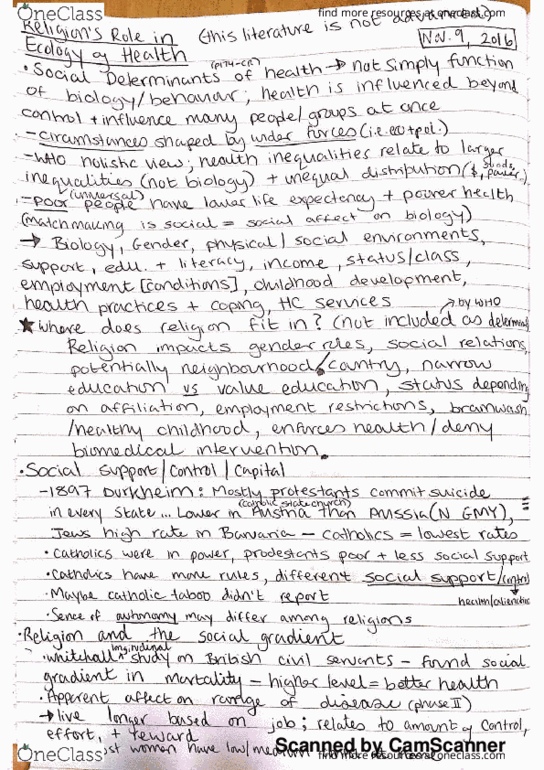 OneClass
find more resources at oneclass.com
Religion's Role in (this literature is not
Ecology of Health
Nov. 9, 2016
• Social Determinants of health → not simply function
of biology/behaviour; health is influenced beyond
control + influence many people/groups at once
- circumstances shaped by wider forces (i.e. ec + pol.)
- WHO holistic view; health inequalities relate to larger
inequalities (not biology) + unequal distribution ($, power.)
(universal)
- poor people have lower life expectency + poorer health
(matchmaking is social = social affect on biology)
→ Biology, Gender, physical/social environments,
support, edu. + literacy, income, status/class,
employment [conditions], childhood development,
health practices + coping, HC services
→ by WHO
★ Where does religion fit in? (not included as determin
Religion impacts gender roles, social relations,
potentially neighbourhood/country, narrow
education vs value education, status depending
on affiliation, employment restrictions, brainwash
/healthy childhood, enforces health/deny
biomedical intervention.
• Social support/Control/Capital
- 1897 Durkheim: Mostly protestants commit suicide
(catholic state church)
in every state ... Lower in Austria than Prussia (N GMY),
Jews high rate in Bavaria - catholics = lowest rates
• Catholics were in power, protestants poor + less social support
• Catholics have more rules, different social support/control
• Maybe catholic taboo didn't report
• Sense of autonomy may differ among religions
• Religion and the social gradient
longitudinal
• Whitehall study on British civil servants - found social
gradient in mortality - higher level = better health
• Apparent affect on range of disease (phase II)
→ live longer based on job; relates to amount of control,
effort, + reward
st women have low/med
OneClass
Scanned by CamScanner
find more resources at oneclass.com